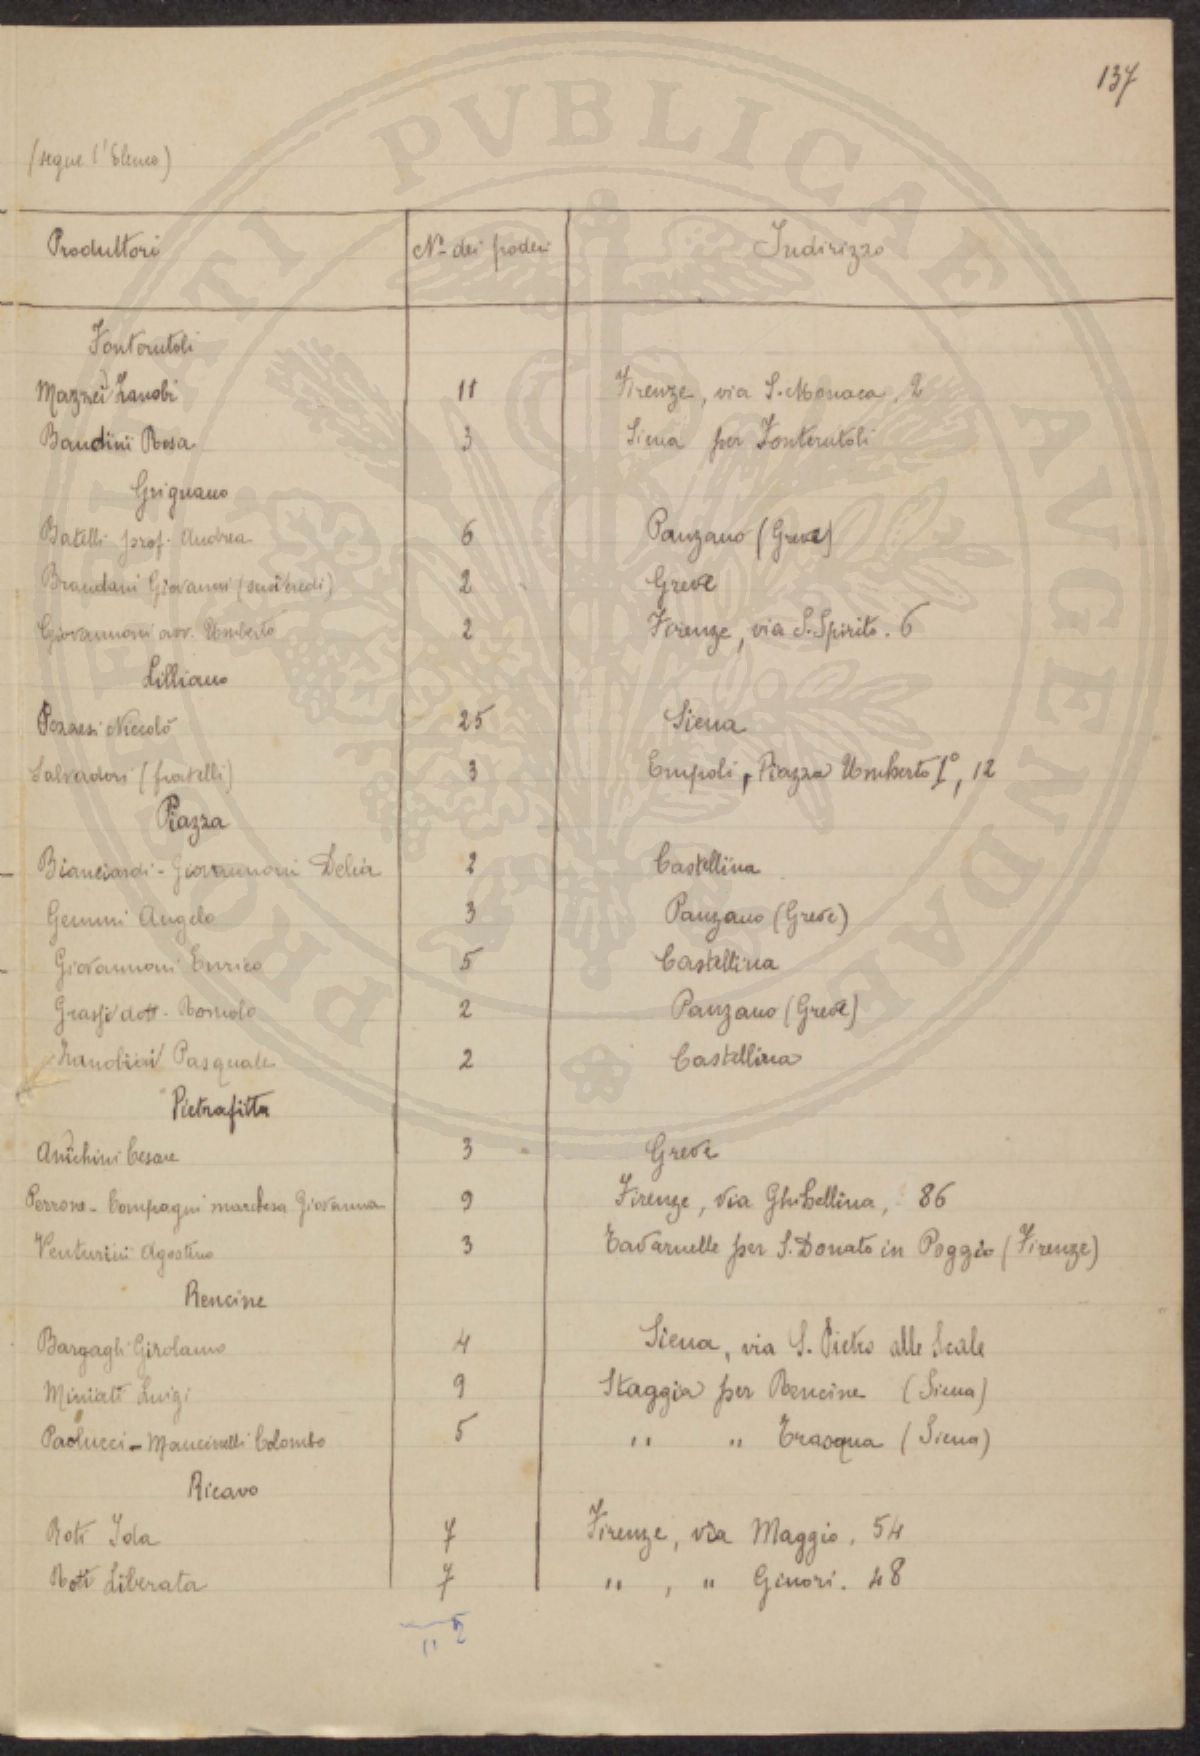 137
(segue l'Elenco)
Produttori Nº dei poderi Indirizzo
Fonterutoli
Mazzei Zanobi 11 Firenze, via S. Monaca, 2
Bandini Rosa 3 Siena per Fonterutoli
Grignano
Batelli prof. Andrea 6 Panzano (Greve)
Brandani Giovanni (suoi eredi) 2 Greve
Giovannoni avv. Umberto 2 Firenze, via S. Spirito. 6
Lilliano
Pozzesi Niccolò 25 Siena
Salvadori (fratelli) 3 Empoli, Piazza Umberto Iº, 12
Piazza
Bianciardi - Giovannoni Delia 2 Castellina
Gemmi Angelo 3 Panzano (Greve)
Giovannoni Enrico 5 Castellina
Grassi dott. Romolo 2 Panzano (Greve)
Zanobini Pasquale 2 Castellina
Pietrafitta
Anichini Cesare 3 Greve
Perrone - Compagni marchesa Giovanna 9 Firenze, via Ghibellina, 86
Venturini Agostino 3 Tavarnelle per S. Donato in Poggio (Firenze)
Rencine
Bargagli Girolamo 4 Siena, via S. Pietro alle Scale
Miniati Luigi 9 Staggia per Rencine (Siena)
Paolucci - Mancinelli Colombo 5 " " Trasqua (Siena)
Ricavo
Roti Ida 7 Firenze, via Maggio. 54
Roti Liberata 7 " , " Ginori. 48
PROSPERITATI PVBLICAE AVGENDAE